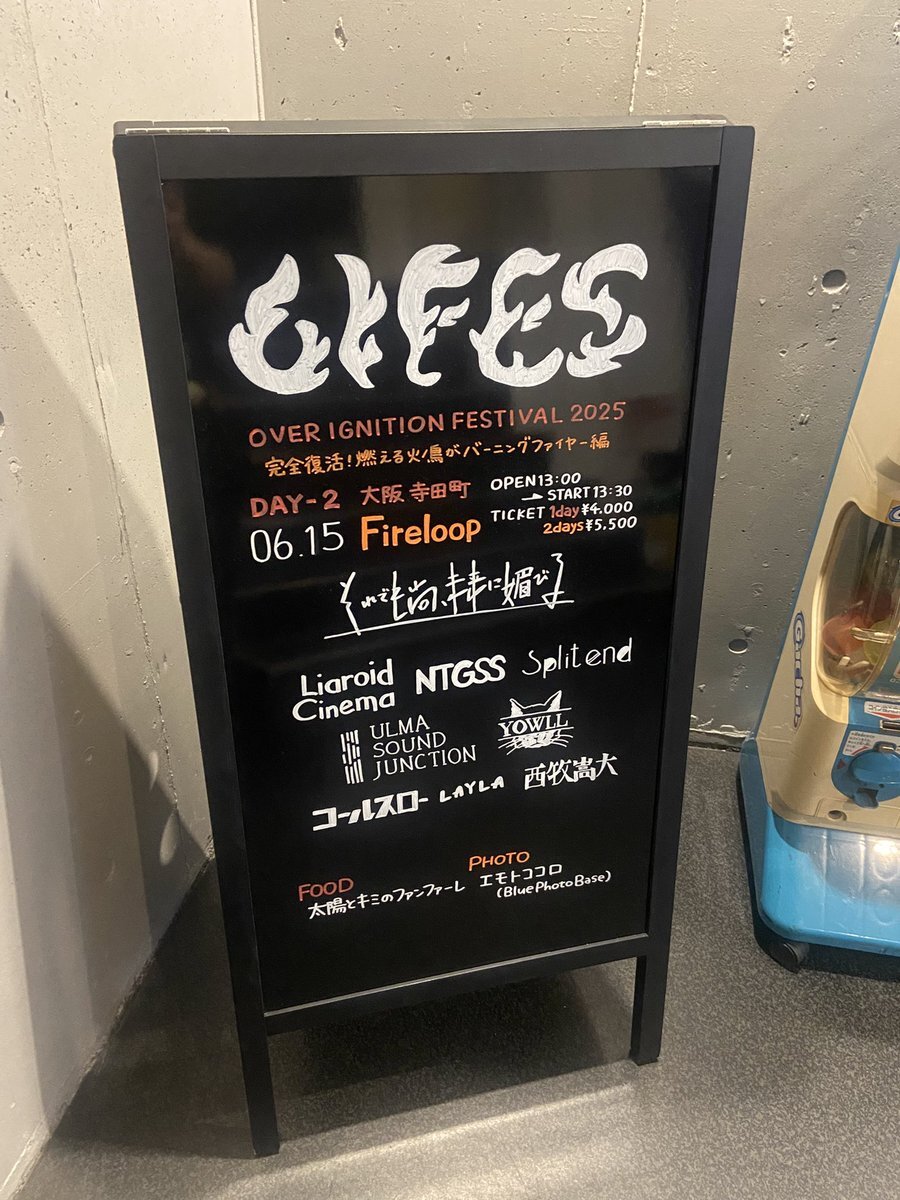 OIFES
OVER IGNITION FESTIVAL 2025
完全復活！燃える火ノ鳥がバーニングファイヤー編
DAY-2 大阪 寺田町
06.15 Fireloop
OPEN13:00
→START 13:30
TICKET 1day¥4.000
2days¥5.500
それでも尚、未来に媚びる
Liaroid Cinema
NTGSS
Split end
ULMA
SOUND
JUNCTION
YOWLL
コールスロー
LAYLA
西牧嵩大
FOOD
太陽とキミのファンファーレ
PHOTO
エモトココロ
(Blue Photo Base)